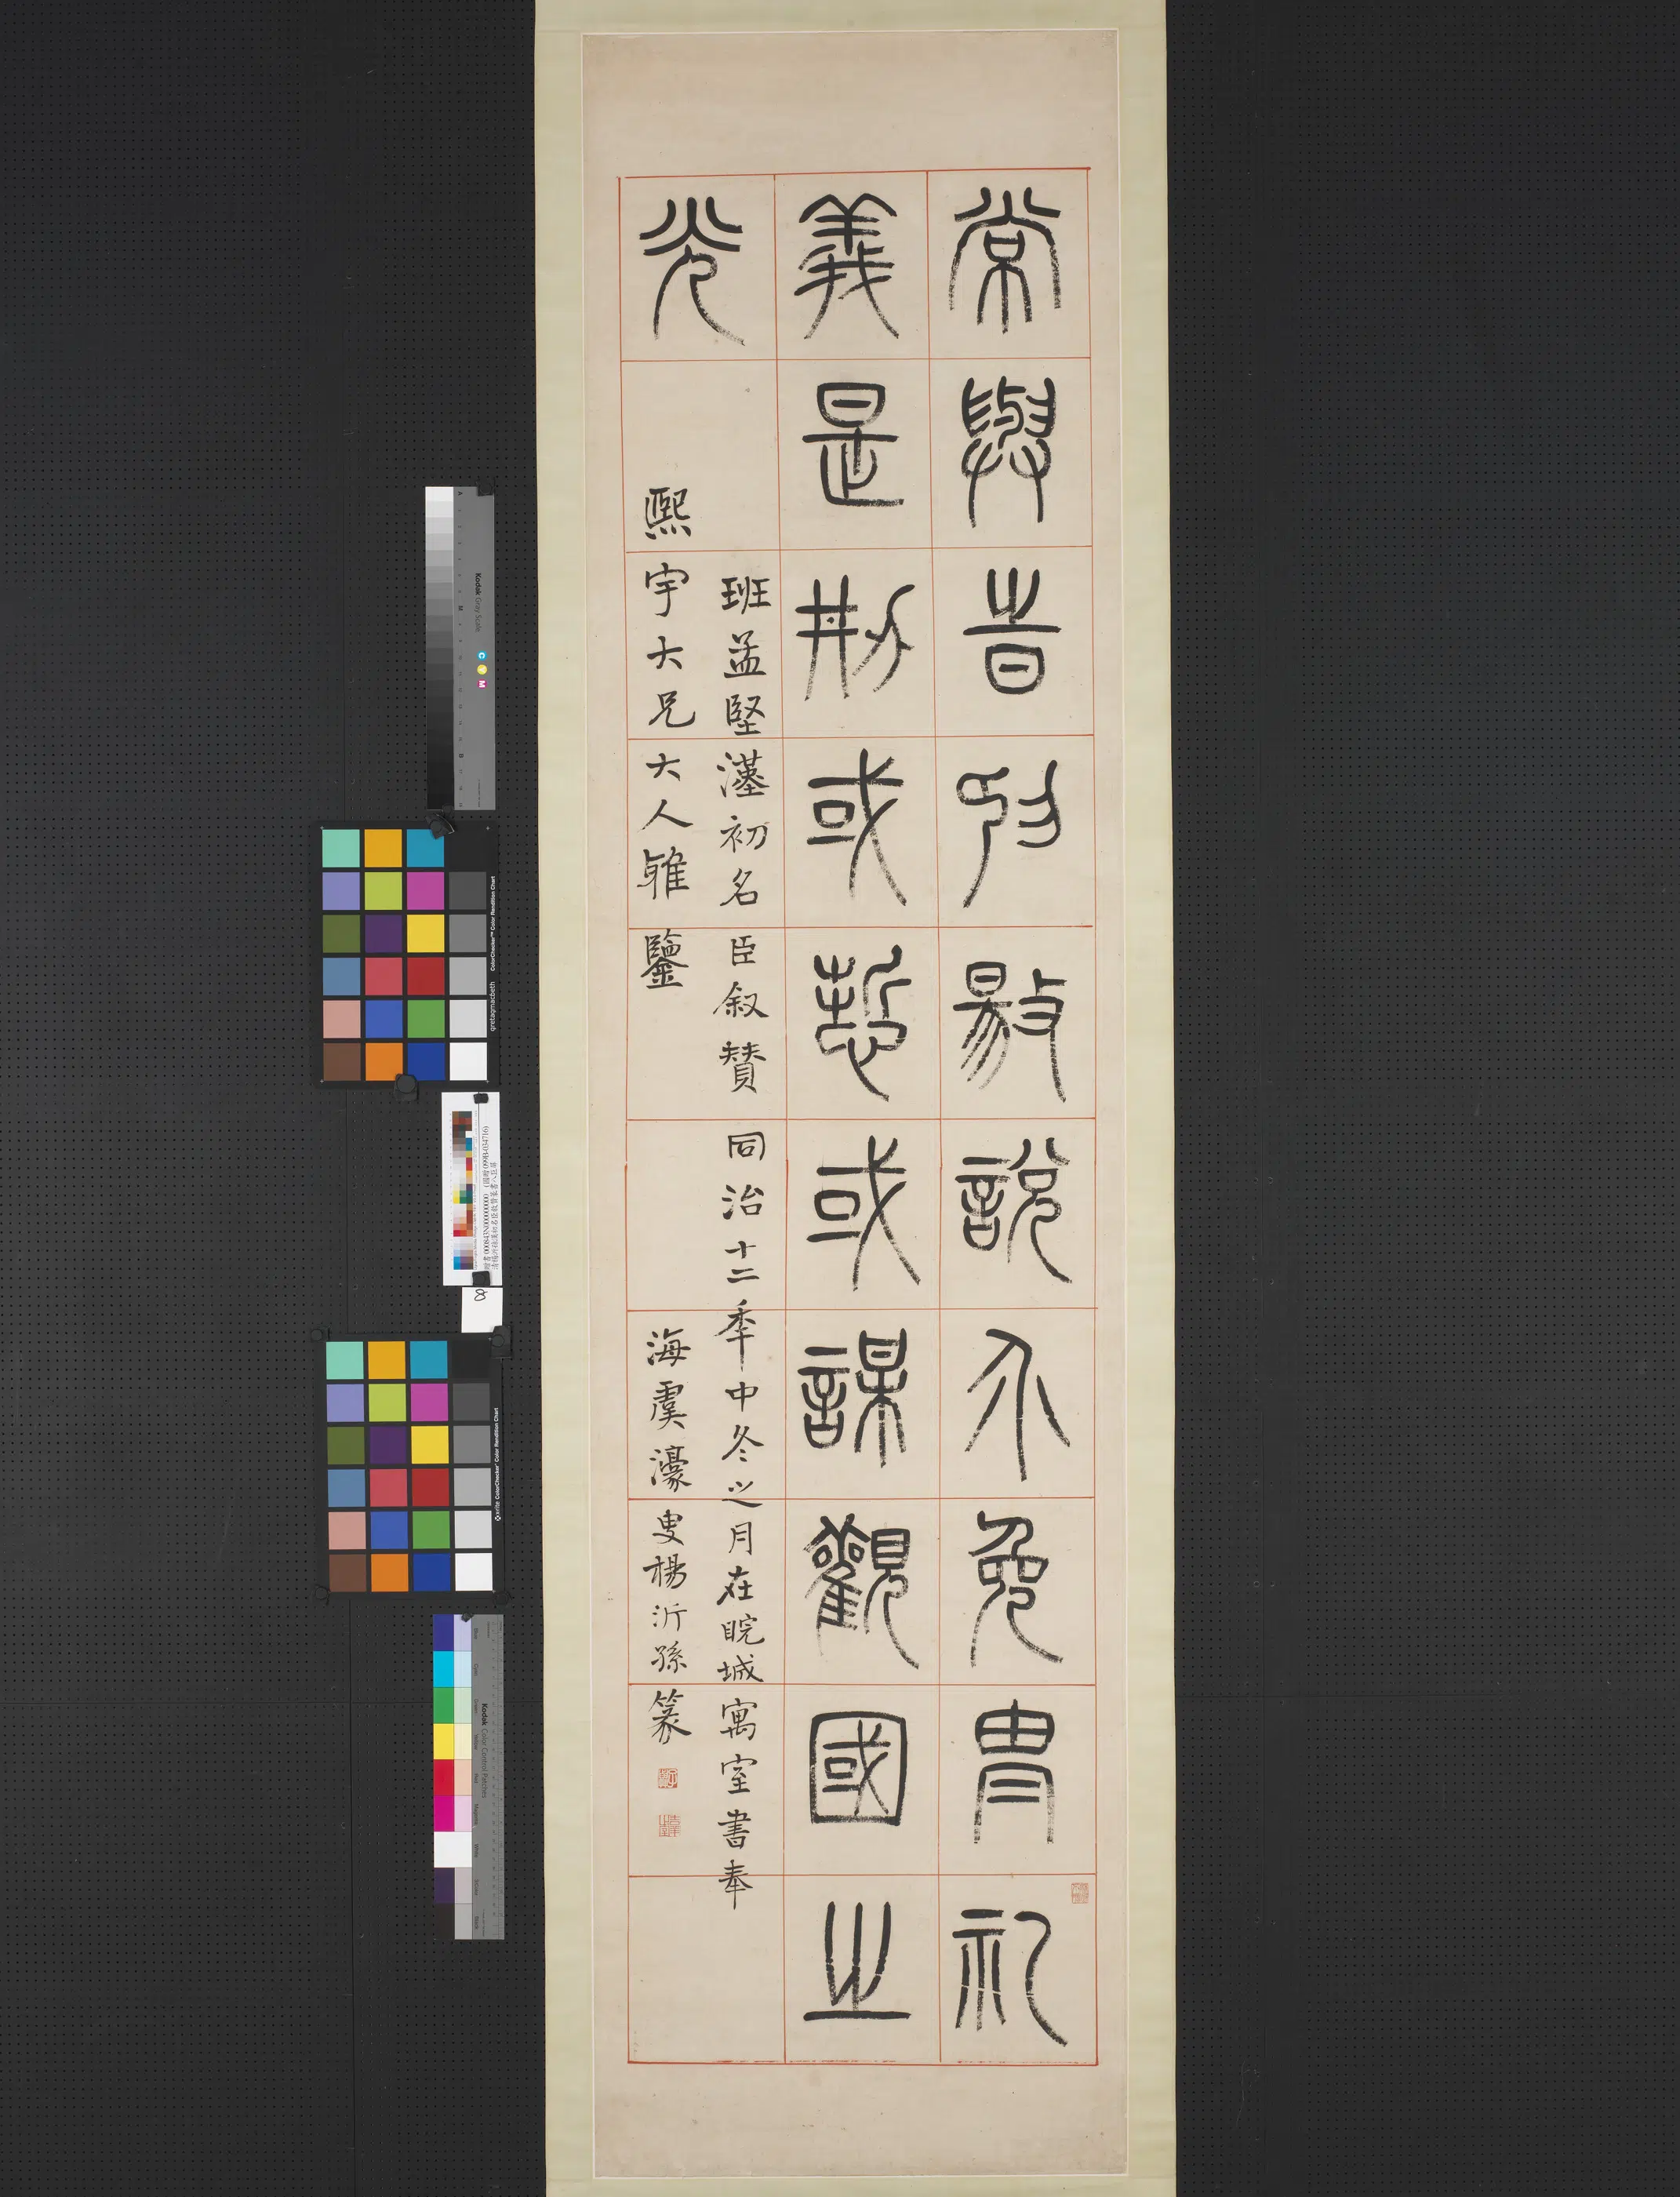 常與旹抑敭說介免冑礼
義是刱或悊或謀觀國之
光
班孟堅漢初名臣叙贊 同治十二季中冬之月在睆城寓室書奉
熙宇大兄大人雅鑒
海虞濠叟楊沂孫篆
Kodak Gray Scale
C Y M
ColorChecker Color Rendition Chart
gretagmacbeth
8
x-rite ColorChecker Color Rendition Chart
Kodak Color Control Patches